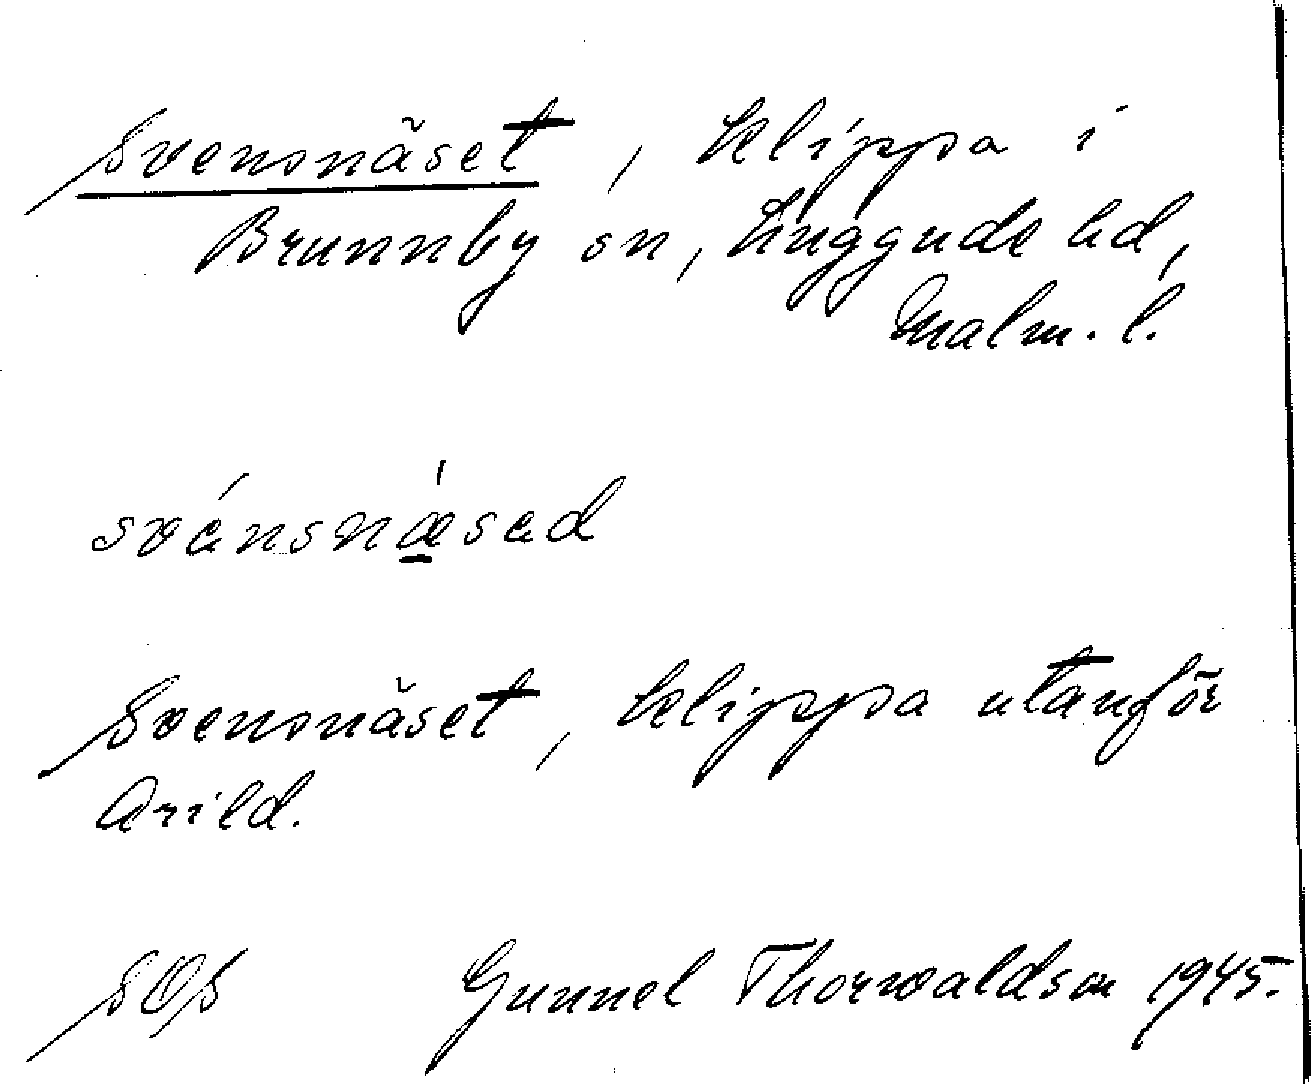 Svensnäset, klippa i
Brunnby sn, Luggude hd,
Malm. l.
svénsnǽsed
Svensnäset, klippa utanför
Arild.
SOS Gunnel Thorwaldson 1945.